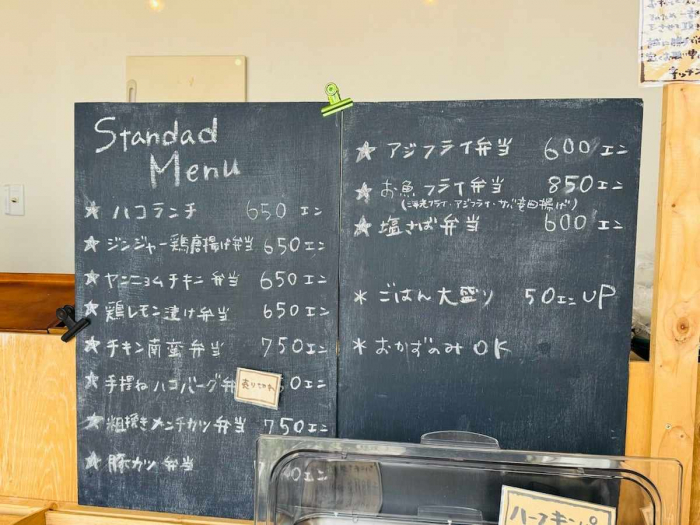 Standad
Menu
★ ハコランチ 650エン
★ ジンジャー鶏唐揚げ弁当 650エン
★ ヤンニョムチキン弁当 650エン
★ 鶏レモン漬け弁当 650エン
★ チキン南蛮弁当 750エン
★ 手捏ねハコバーグ弁 0エン
売り切れ
★ 粗挽きメンチカツ弁当 750エン
★ 豚カツ弁当 エン
★ アジフライ弁当 600エン
★ お魚フライ弁当 850エン
アジフライ・サバ竜田揚げ)
★ 塩さば弁当 600エン
* ごはん大盛り 50エンUP
* おかずのみOK